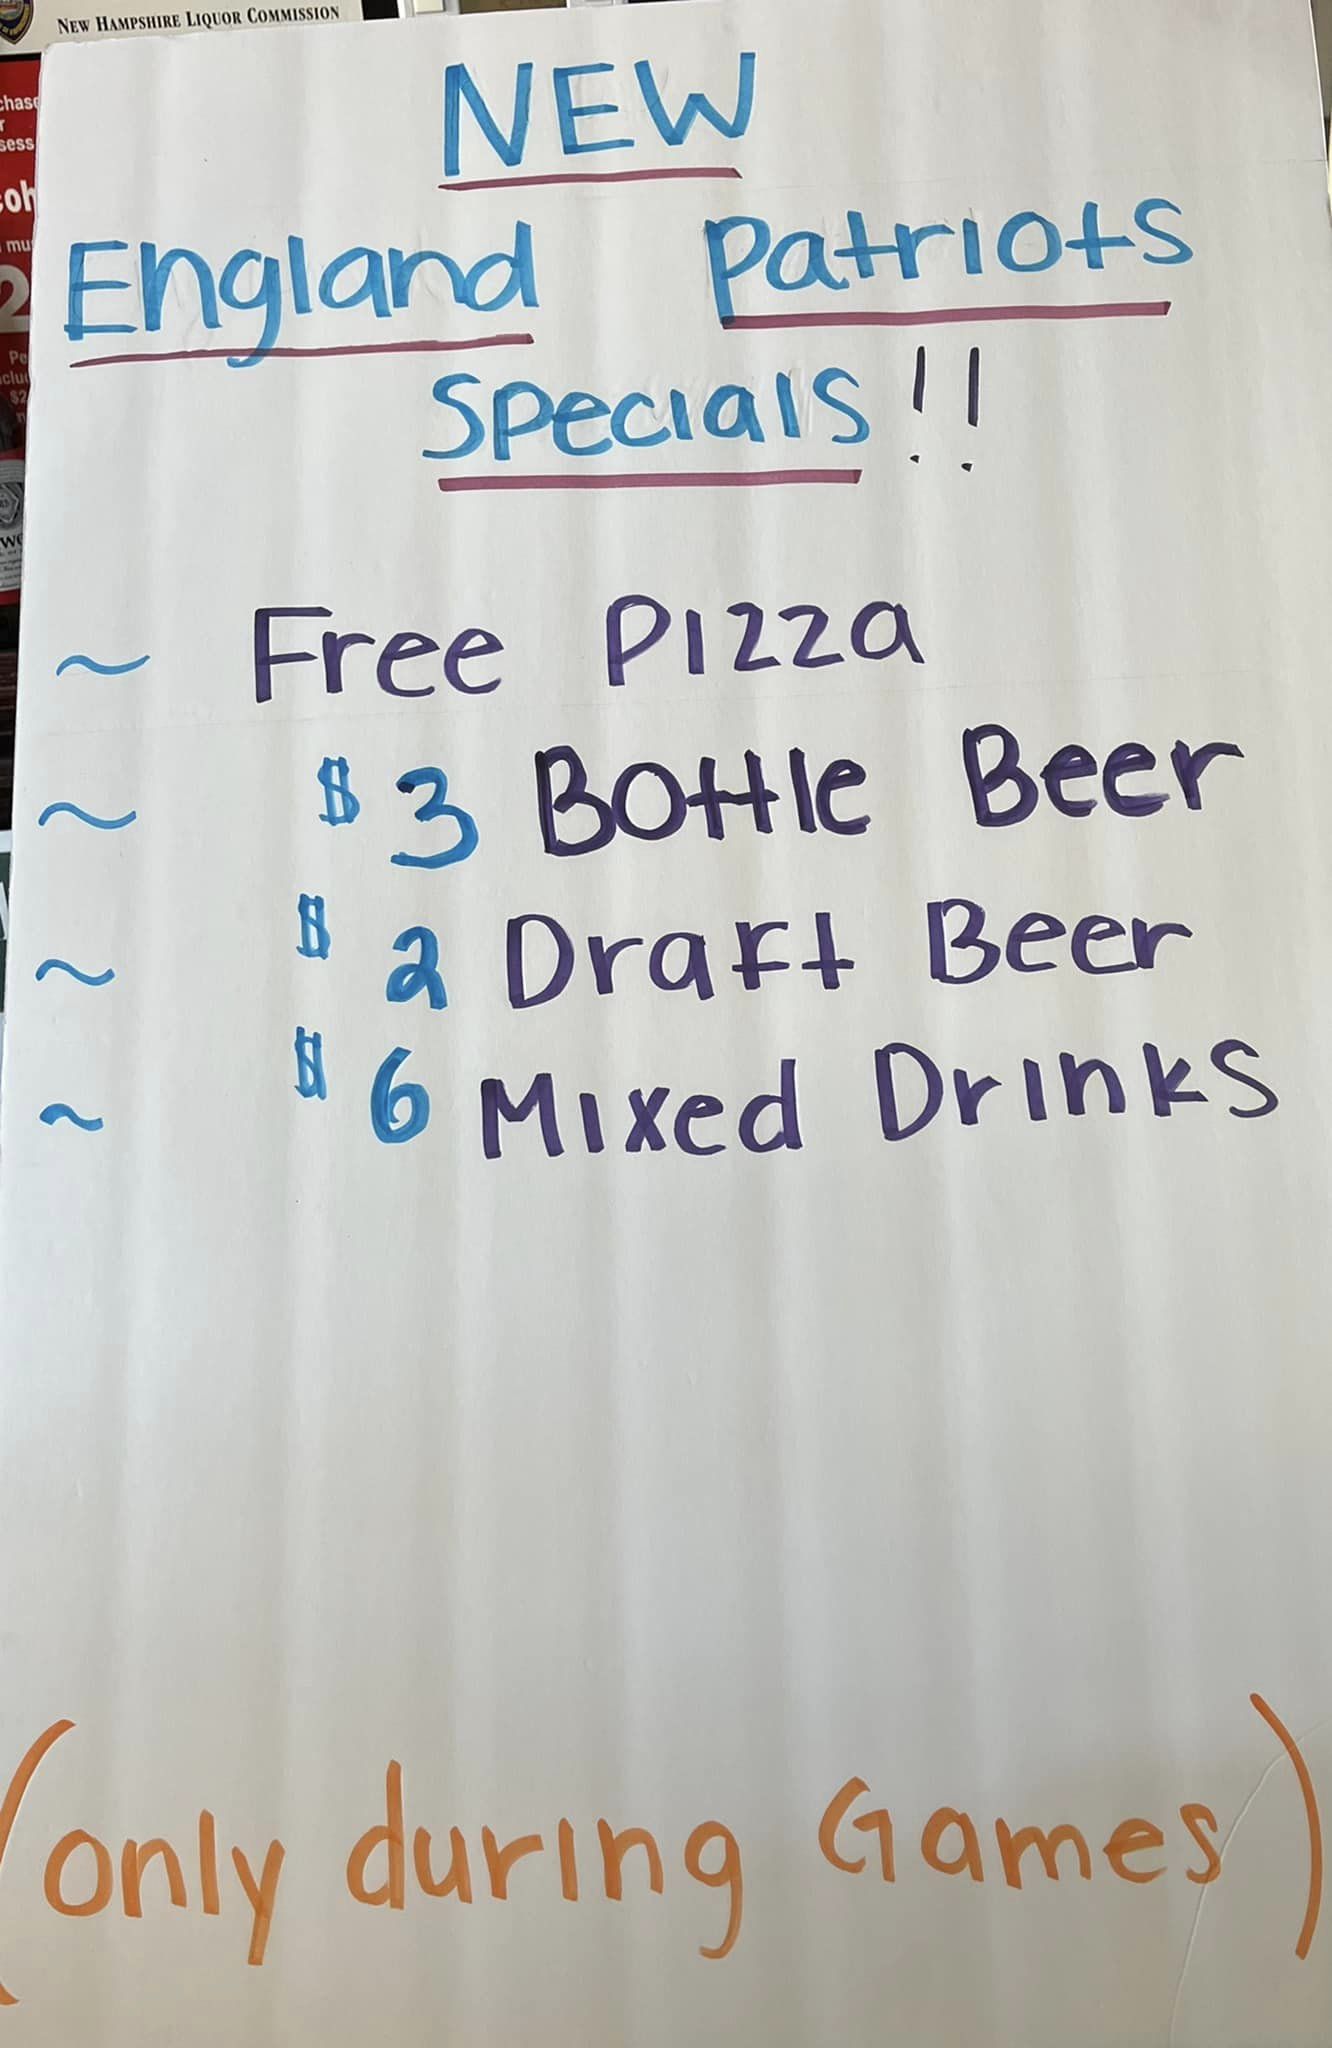 NEW HAMPSHIRE LIQUOR COMMISSION
NEW
England Patriots
Specials!!
~ Free Pizza
~ $3 Bottle Beer
~ $2 Draft Beer
~ $6 Mixed Drinks
(only during Games)